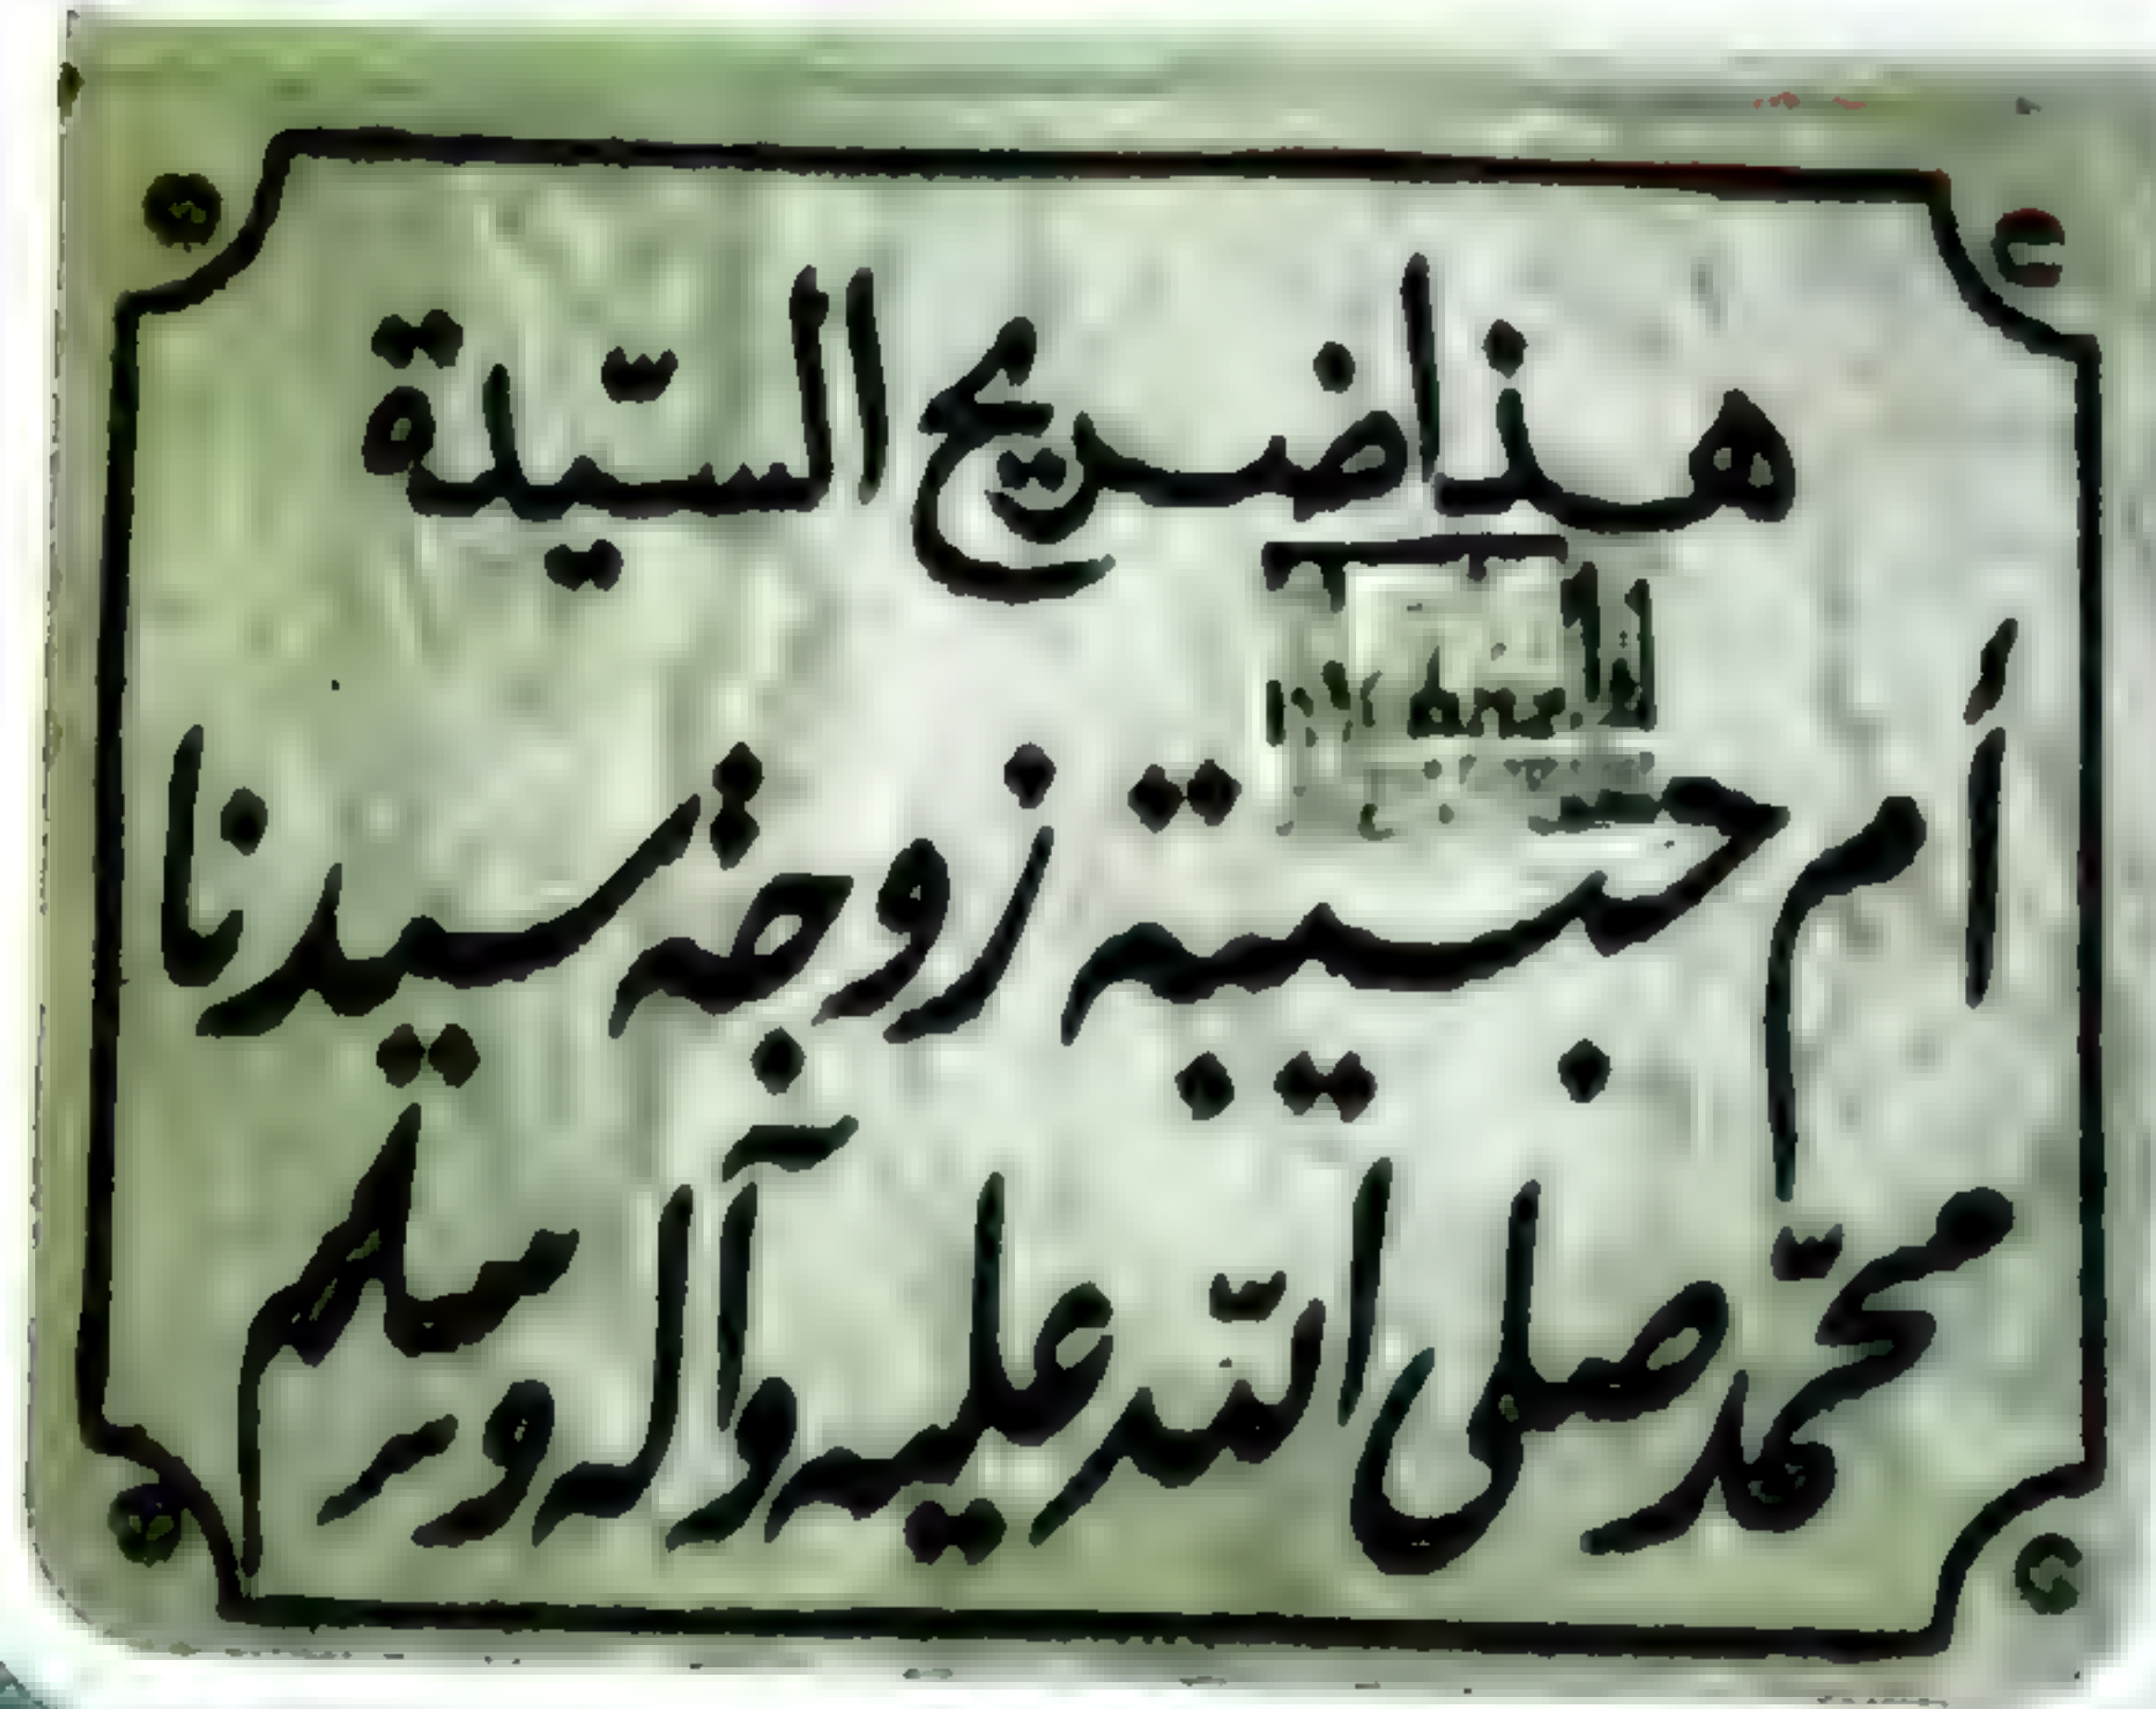 هذا ضريح السيّدة
أم حبيبة زوجة سيدنا
محمّد صلى الله عليه وآله وسلم